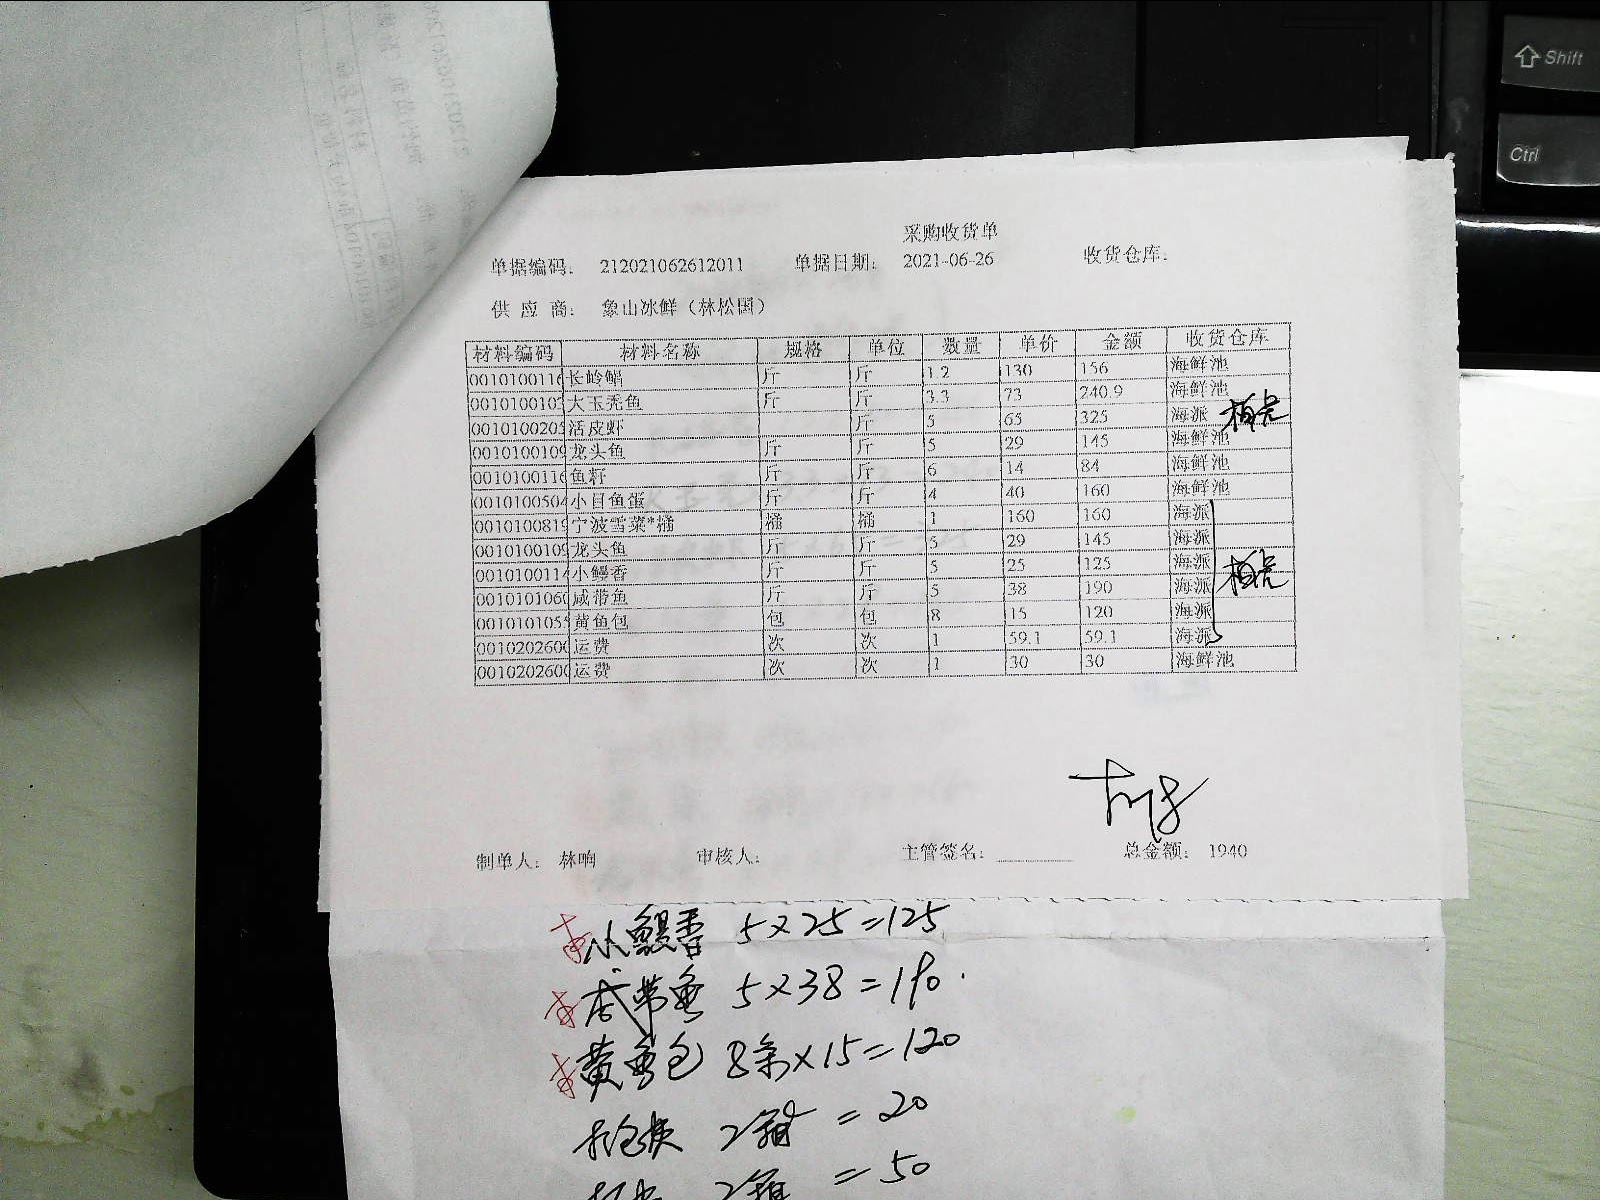 Shift
Ctrl
采购收货单
单据编码： 212021062612011 单据日期： 2021-06-26 收货仓库：
供 应 商： 象山冰鲜（林松国）
材料编码 材料名称 规格 单位 数量 单价 金额 收货仓库
0010100116 长岭鲳 斤 斤 1.2 130 156 海鲜池
001010010 大玉秃鱼 斤 斤 3.3 73 240.9 海鲜池
0010100205 活皮虾 斤 5 65 325 海派
0010100109 龙头鱼 斤 斤 5 29 145 海鲜池
0010100116 鱼籽 斤 斤 6 14 84 海鲜池
0010100504 小目鱼蛋 斤 斤 4 40 160 海鲜池
0010100819 宁波雪菜*桶 桶 桶 1 160 160 海派
0010100109 龙头鱼 斤 斤 5 29 145 海派
0010100114 小鳗香 斤 斤 5 25 125 海派
0010101060 咸带鱼 斤 斤 5 38 190 海派
0010101055 黄鱼包 包 包 8 15 120 海派
0010202600 运费 次 次 1 59.1 59.1 海派
0010202600 运费 次 次 1 30 30 海鲜池
制单人： 林响 审核人： 主管签名： 总金额： 1940
小鳗香 5×25=125
咸带鱼 5×38=190
黄鱼包 8条×15=120
2箱 =20
2箱 =50